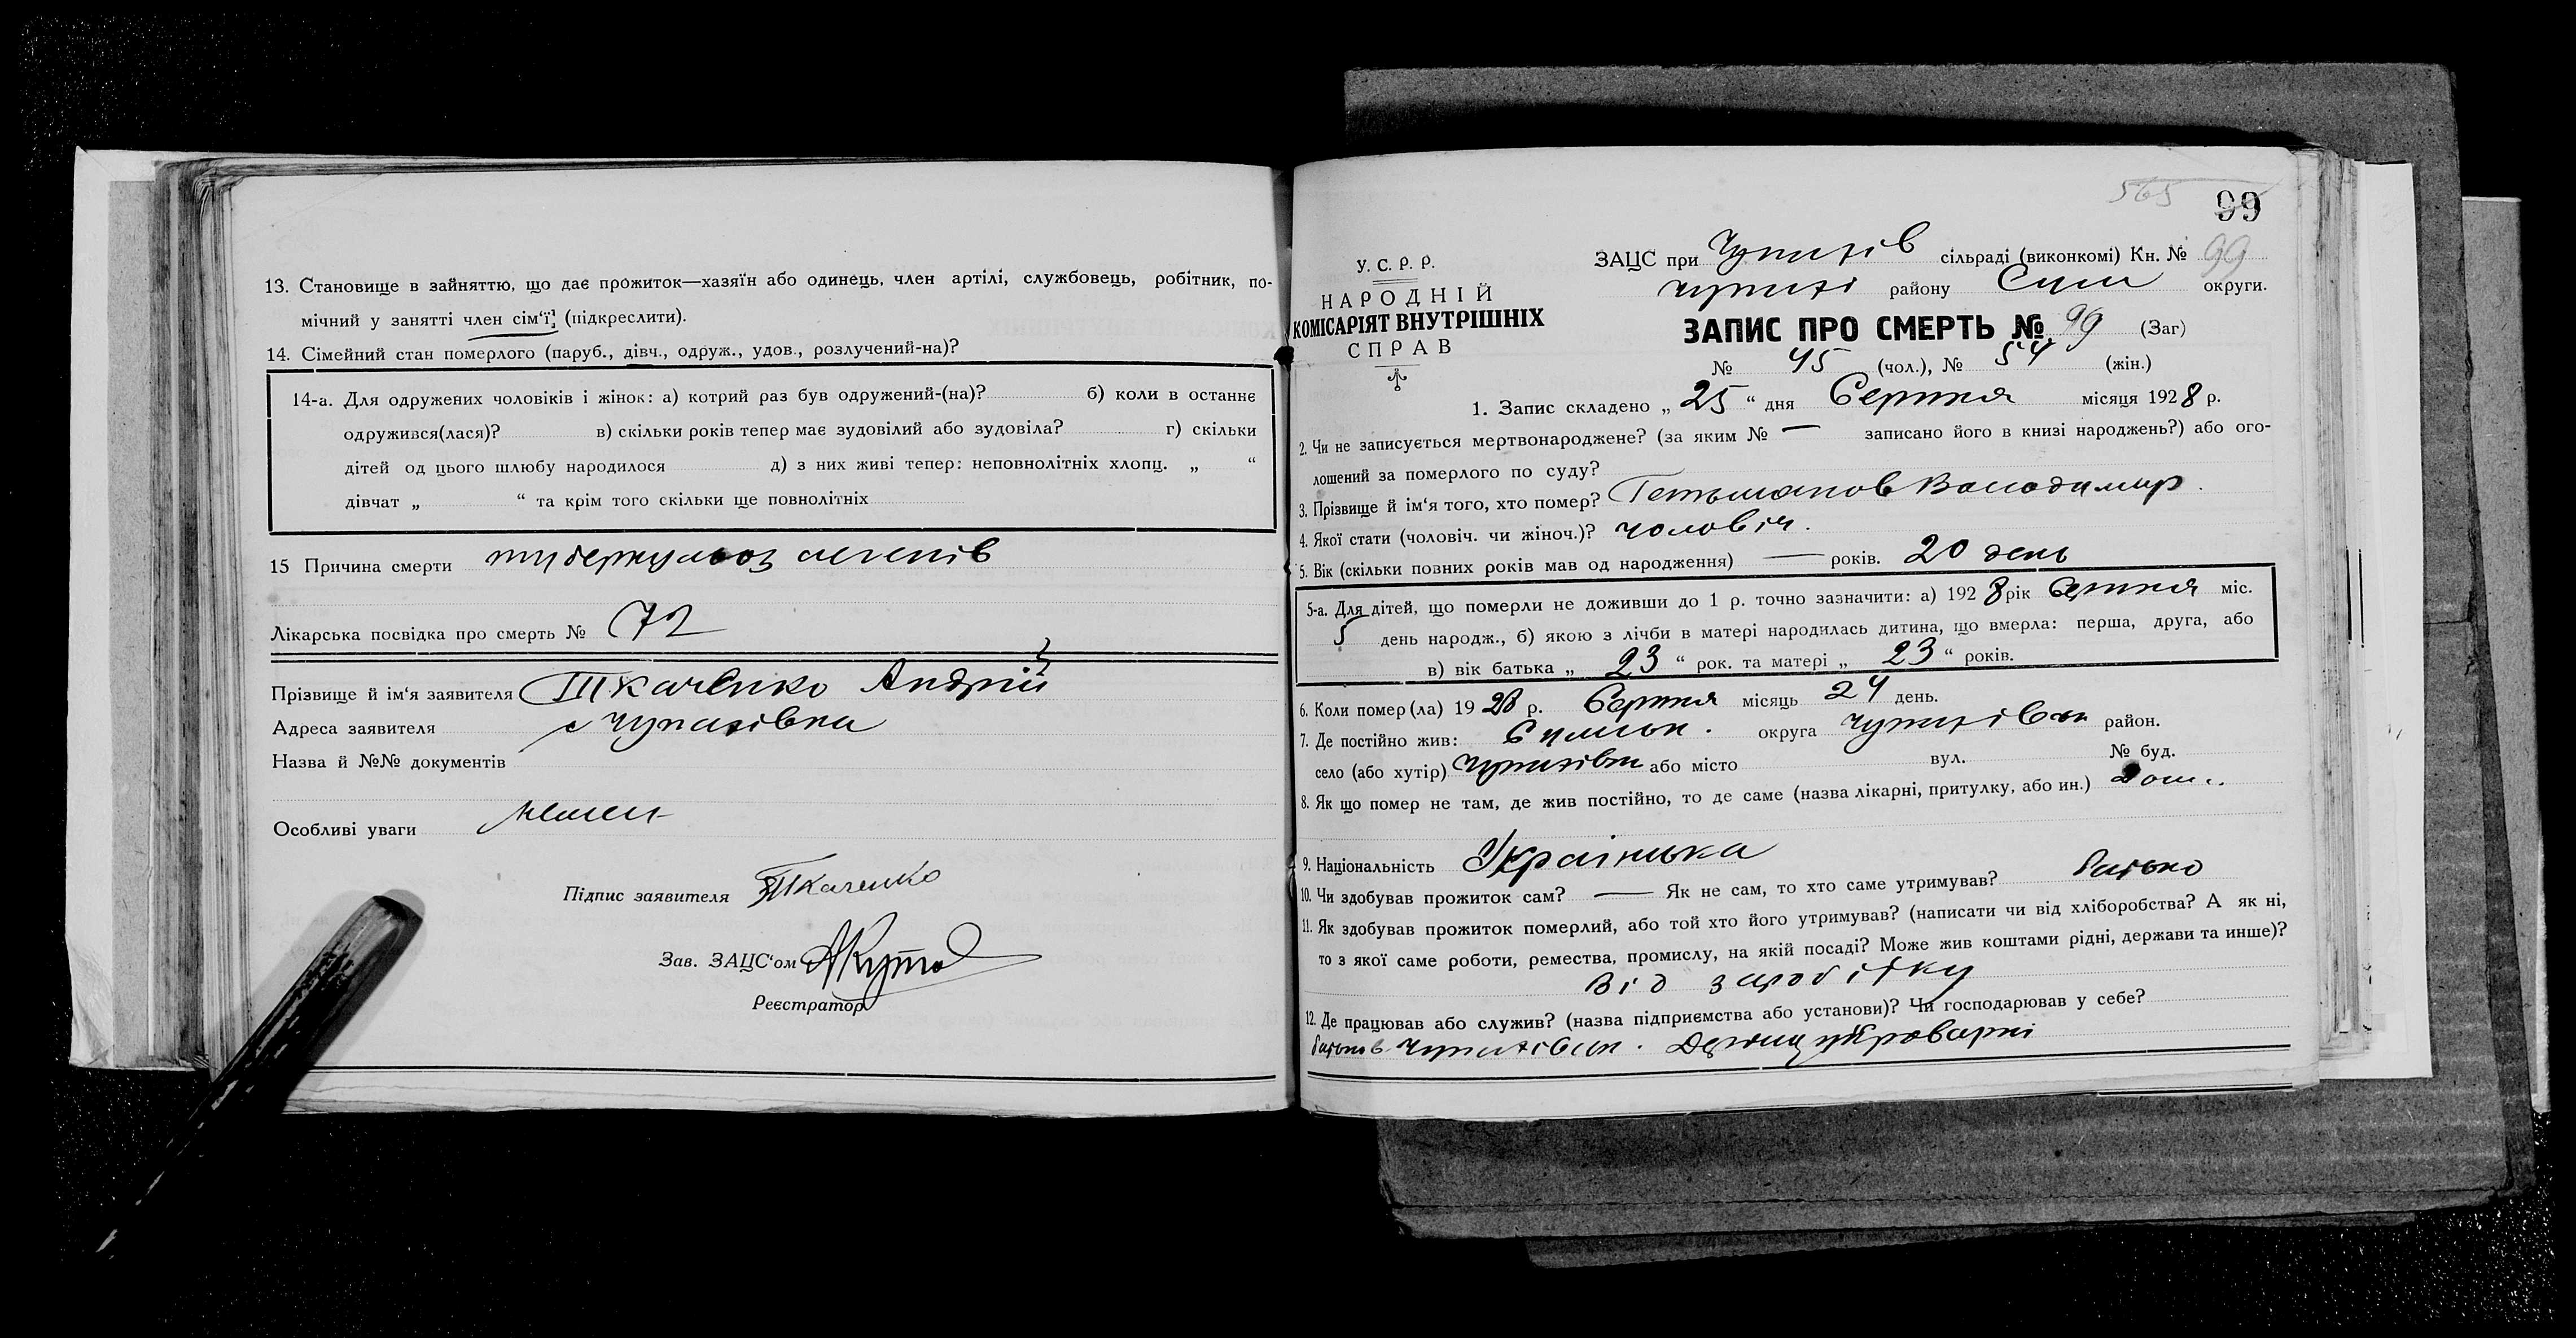 13. Становище в зайняттю, що дає прожиток—хазяїн або одинець, член артілі, службовець, робітник, по-
мічний у занятті член сім'ї (підкреслити).
14. Сімейний стан померлого (паруб., дівч., одруж., удов., розлучений-на)?
14-а. Для одружених чоловіків і жінок: а) котрий раз був одружений-(на)? б) коли в останнє
одружився(лася)? в) скільки років тепер має зудовілий або зудовіла? г) скільки
дітей од цього шлюбу народилося д) з них живі тепер: неповнолітніх хлопц. „ “
дівчат „ “ та крім того скільки ще повнолітніх
15 Причина смерти туберкульоз легенів
Лікарська посвідка про смерть № 72
Прізвище й ім'я заявителя Ткаченко Андрій
Адреса заявителя с Чупахівка
Назва й №№ документів
Особливі уваги немає
Підпис заявителя Ткаченко
Зав. ЗАЦС'ом
Реєстратор
565
99
У. С. Р. Р.
НАРОДНІЙ
КОМІСАРІЯТ ВНУТРІШНІХ
СПРАВ
ЗАЦС при Чупахів сільраді (виконкомі) Кн. № 99
Чупахі району Суми округи.
ЗАПИС ПРО СМЕРТЬ № 99 (Заг)
№ 45 (чол.), № 54 (жін.)
1. Запис складено „ 25 “ дня Серпня місяця 1928 р.
2. Чи не записується мертвонароджене? (за яким № — записано його в книзі народжень?) або ого-
лошений за померлого по суду?
3. Прізвище й ім'я того, хто помер? Гетьманов Володимир.
4. Якої стати (чоловіч. чи жіноч.)? чоловіч.
5. Вік (скільки повних років мав од народження) — років. 20 день
5-а. Для дітей, що померли не доживши до 1 р. точно зазначити: а) 1928 рік Серпня міс.
5 день народж., б) якою з лічби в матері народилась дитина, що вмерла: перша, друга, або
в) вік батька „ 23 “ рок. та матері „ 23 “ років.
6. Коли помер(ла) 1928 р. Серпня місяць 24 день.
7. Де постійно жив: Сумськ. округа Чупахівськ район.
село (або хутір) Чупахівка або місто вул. № буд.
8. Як що помер не там, де жив постійно, то де саме (назва лікарні, притулку, або ин.) Дома.
9. Національність Українська
10. Чи здобував прожиток сам? — Як не сам, то хто саме утримував? батько
11. Як здобував прожиток померлий, або той хто його утримував? (написати чи від хліборобства? А як ні,
то з якої саме роботи, ремества, промислу, на якій посаді? Може жив коштами рідні, держави та инше)?
Від заробітку
12. Де працював або служив? (назва підприємства або установи)? Чи господарював у себе?
батько в Чупахівськ. Держцукроварні